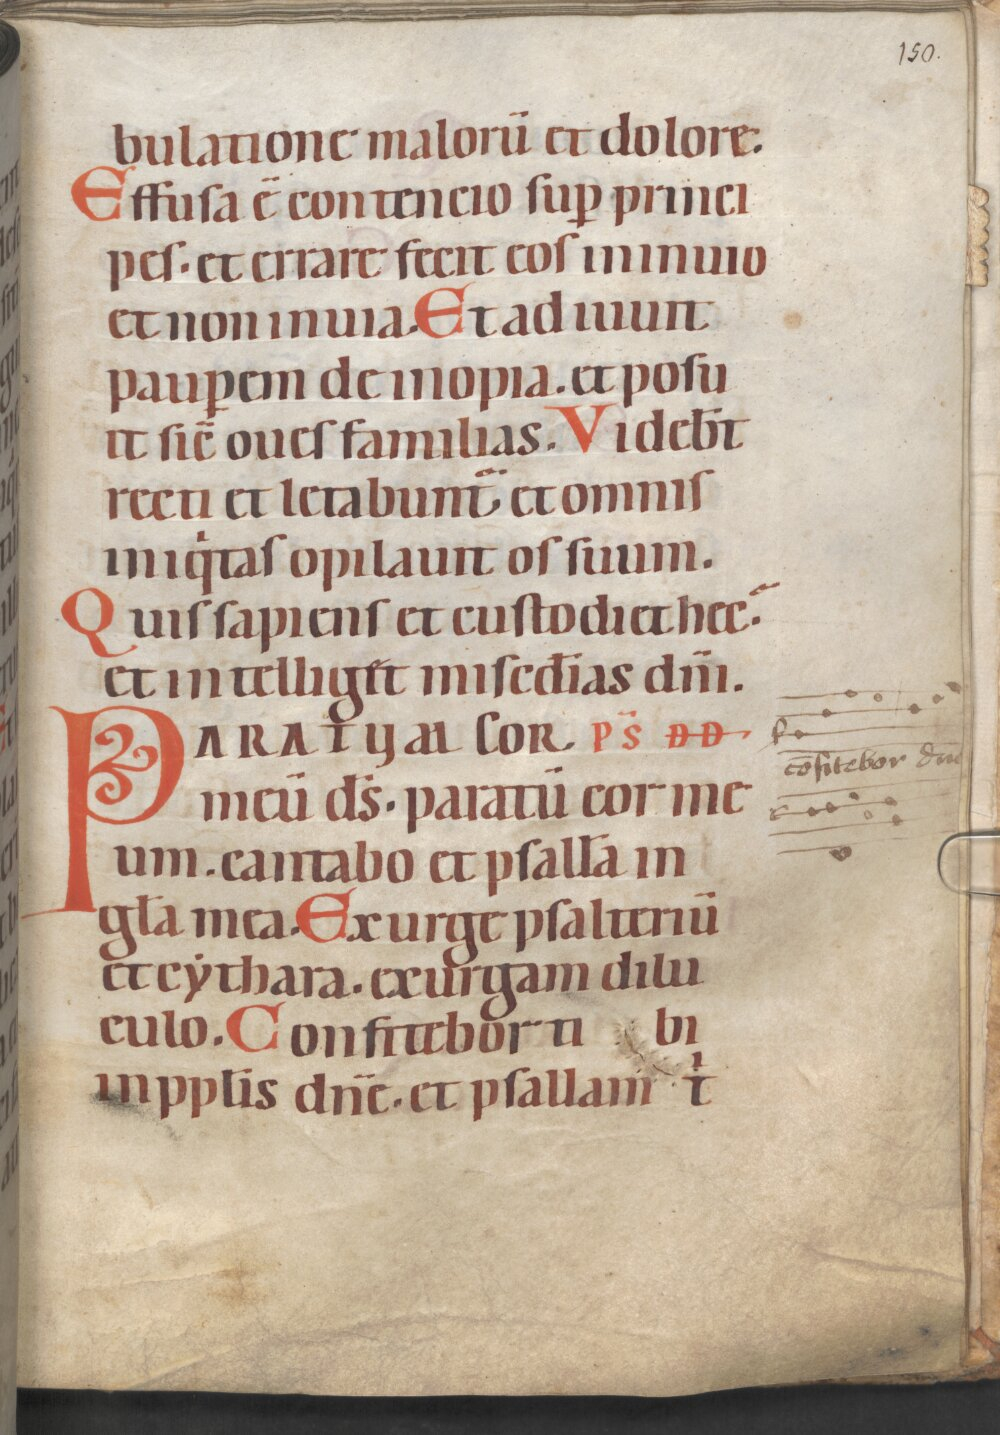 150.
bulatione malorū et dolore.
Effusa ē contencio suꝑ princi
pes. et errare fecit eos in inuio
et non in uia. Et adiuuit
pauꝑem de inopia. et posu
it sic̄ oues familias. Videb̄t
recti et letabunt᷑ et omnis
iniqͥtas opilauit os suum.
Quis sapiens et custodiet hec.᷑
et intelliget mis̄cdias dn̄i.
PARATUM COR PS̄ DD
meū ds̄. paratū cor me
um. cantabo et psallā in
gl̄a mea. Exurge psalteriū
et cẏthara. exurgam dilu
culo. Confitebor ti bi
in ppl̄is dn̄e. et psallam tͥ
cōfitebor dn̄e